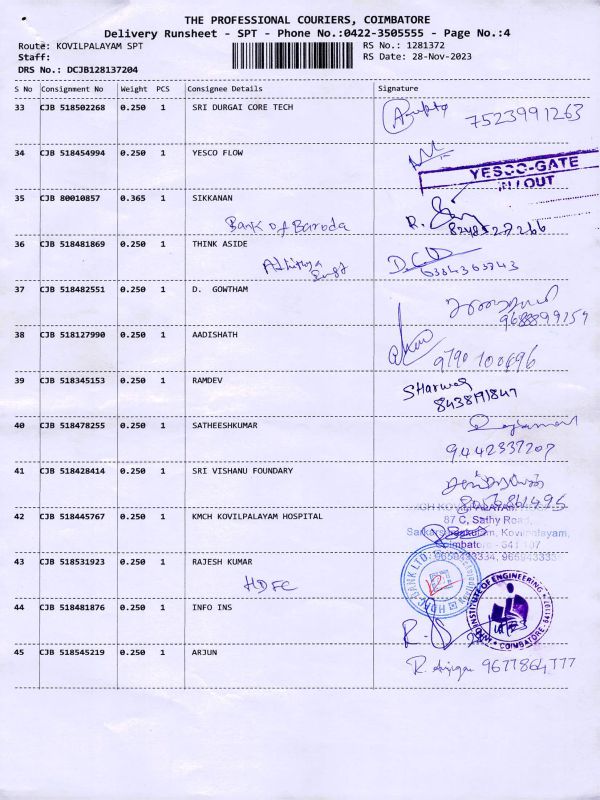 THE PROFESSIONAL COURIERS, COIMBATORE
Delivery Runsheet - SPT - Phone No.:0422-3505555 - Page No.:4
Route: KOVILPALAYAM SPT RS No.: 1281372
Staff: RS Date: 28-Nov-2023
DRS No.: DCJB128137204
S No Consignment No Weight PCS Consignee Details Signature
33 CJB 518502268 0.250 1 SRI DURGAI CORE TECH 7523991263
34 CJB 518454994 0.250 1 YESCO FLOW
YESCO-GATE
IN / OUT
35 CJB 80010857 0.365 1 SIKKANAN
Bank of Baroda
36 CJB 518481869 0.250 1 THINK ASIDE
37 CJB 518482551 0.250 1 D. GOWTHAM
38 CJB 518127990 0.250 1 AADISHATH
9790100696
39 CJB 518345153 0.250 1 RAMDEV
8438191847
40 CJB 518478255 0.250 1 SATHEESHKUMAR
9442337207
41 CJB 518428414 0.250 1 SRI VISHANU FOUNDARY
42 CJB 518445767 0.250 1 KMCH KOVILPALAYAM HOSPITAL
87 C, Sathy Road,
Coimbatore - 641 107
43 CJB 518531923 0.250 1 RAJESH KUMAR
HDFC
44 CJB 518481876 0.250 1 INFO INS
INSTITUTE OF ENGINEERING
COIMBATORE
45 CJB 518545219 0.250 1 ARJUN
9677864777